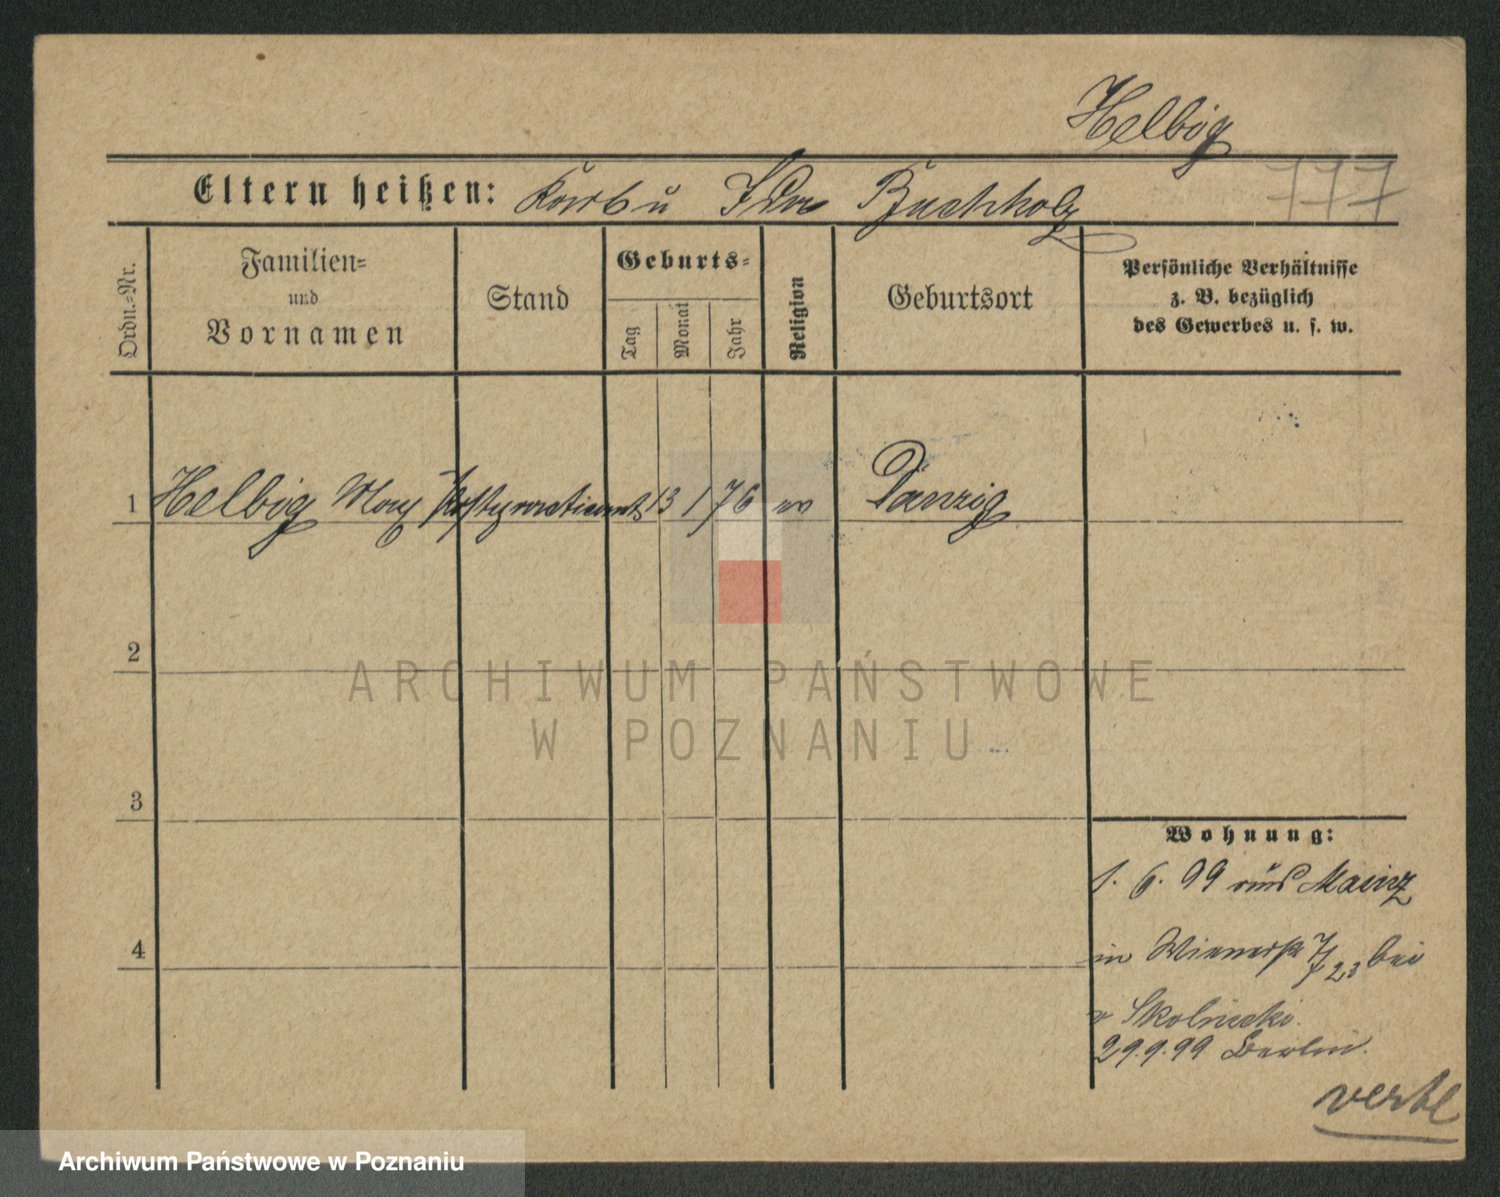 Helbig
777
Eltern heißen: Karl u Ida Buchholz
Ordn.=Nr.
Familien=
und
Vornamen
Stand
Geburts=
Tag
Monat
Jahr
Religion
Geburtsort
Persönliche Verhältnisse
z. B. bezüglich
des Gewerbes u. s. w.
1 Helbig Max Postpracticant 13 1 76 ev Danzig
2
3
4
Wohnung:
1. 6. 99 aus Mainz
in Wienerstr 7/23 bei
v Skolnicki.
29.9.99 Berlin.
ARCHIWUM PAŃSTWOWE
W POZNANIU
Archiwum Państwowe w Poznaniu